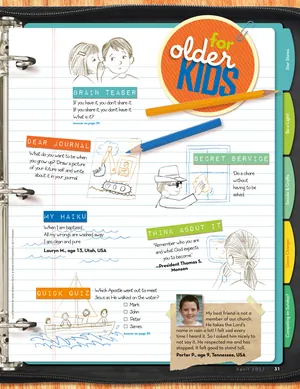 for
older
KIDS
BRAIN TEASER
If you have it, you don't share it.
If you share it, you don't have it.
What is it?
DEAR JOURNAL
What do you want to be when
you grow up? Draw a picture
of your future self and write
about it in your journal.
SECRET SERVICE
Do a chore
without
having to be
asked.
MY HAIKU
When I am baptized,
All my wrongs are washed away
I am clean and pure.
Lauryn M., age 13, Utah, USA
THINK ABOUT IT
"Remember who you are
and what God expects
you to become."
—President Thomas S.
Monson
QUICK QUIZ
Which Apostle went out to meet
Jesus as He walked on the water?
Mark
John
Peter
James
My best friend is not a
member of our church.
He takes the Lord's
name in vain a lot. I felt sad every
time I heard it. So I asked him nicely to
not say it. He respected me and has
stopped. It felt good to stand tall.
Porter P., age 9, Tennessee, USA
April 2017 31